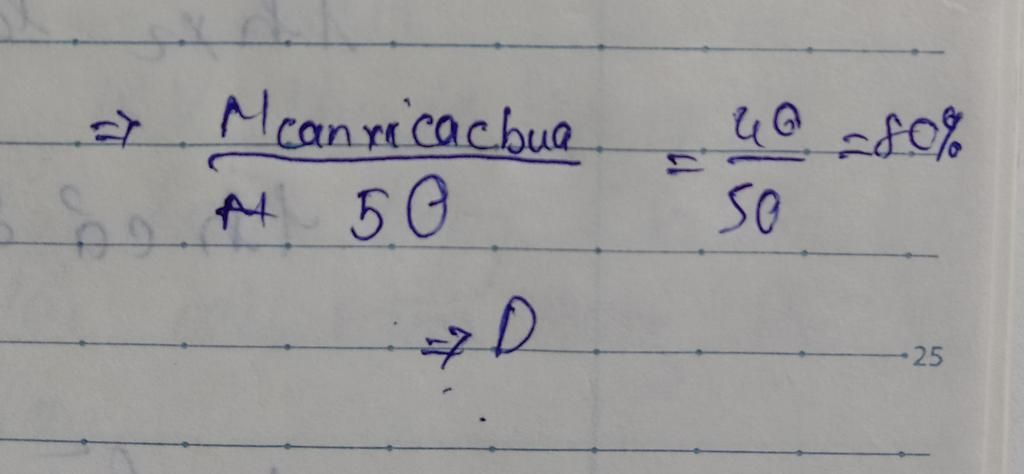 => Mcanxicacbua = 40 = 80%
50 50
=> D
25